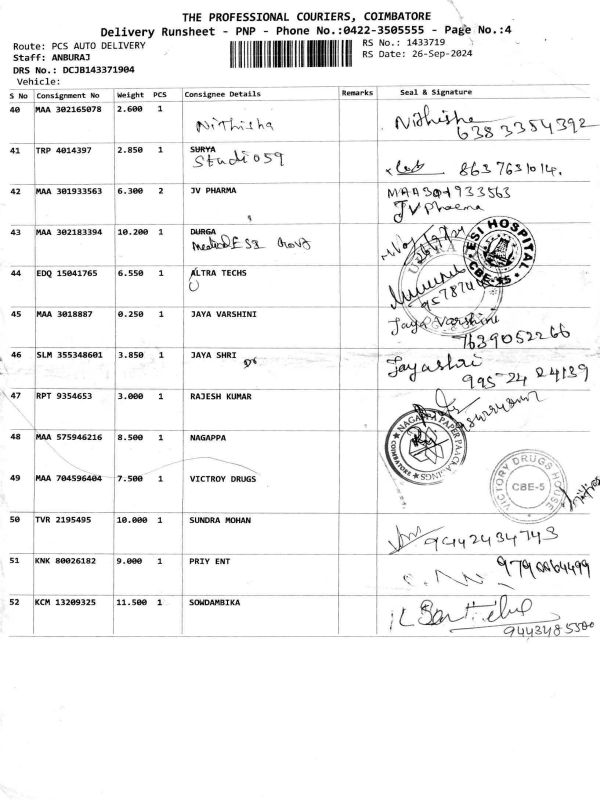 THE PROFESSIONAL COURIERS, COIMBATORE
Delivery Runsheet - PNP - Phone No.:0422-3505555 - Page No.:4
Route: PCS AUTO DELIVERY
Staff: ANBURAJ
DRS No.: DCJB143371904
Vehicle:
RS No.: 1433719
RS Date: 26-Sep-2024
S No Consignment No Weight PCS Consignee Details Remarks Seal & Signature
40 MAA 302165078 2.600 1
Nithisha
Nithisha
6383354392
41 TRP 4014397 2.850 1 SURYA
Studio 059
8637631014.
42 MAA 301933563 6.300 2 JV PHARMA
MAA301933563
JV Pharma
43 MAA 302183394 10.200 1 DURGA
ESI HOSPITAL
CBE-15
44 EDQ 15041765 6.550 1 ALTRA TECHS
45 MAA 3018887 0.250 1 JAYA VARSHINI
Jaya Varshini
7639052266
46 SLM 355348601 3.850 1 JAYA SHRI
Jayashri
995 24 24139
47 RPT 9354653 3.000 1 RAJESH KUMAR
48 MAA 575946216 8.500 1 NAGAPPA
NAGAPPA PAPER PACKAGINGS
COIMBATORE
49 MAA 704596404 7.500 1 VICTROY DRUGS
VICTORY DRUGS HOUSE
CBE-5
50 TVR 2195495 10.000 1 SUNDRA MOHAN
9442434743
51 KNK 80026182 9.000 1 PRIY ENT
52 KCM 13209325 11.500 1 SOWDAMBIKA
9443485500